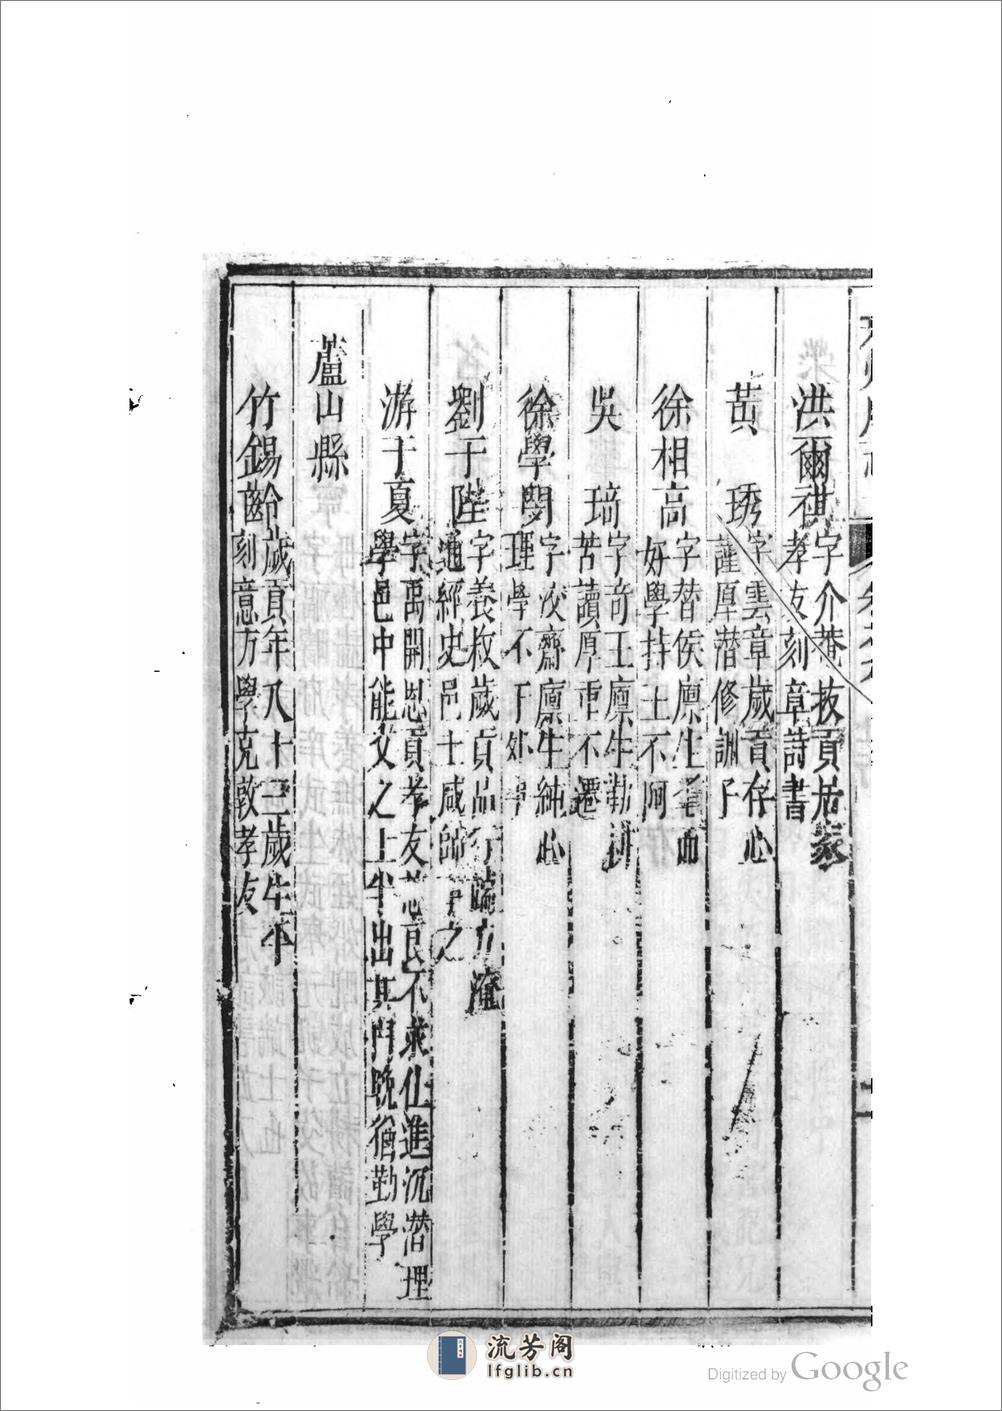 洪爾祺 字介菴拔貢居家
孝友刻章詩書
黃琇 字雲章歲貢存心
謹厚潛修訓子
徐相高 字替侯廩生
好學持士不阿
吳琦 字奇王廩生勤耕
苦讀厚重不遷
徐學閔 字汶齋廩生純心
理學不干外事
劉于陛 字養枚歲貢品行端方淹
通經史邑士咸師之
游于夏 字禹開恩貢孝友慈良不求仕進沉潛理
學邑中能文之士半出其門晚猶勤學
蘆山縣
竹錫齡 歲貢年八十三歲生平
刻意方學克敦孝友
流芳阁
lfglib.cn
Digitized by Google